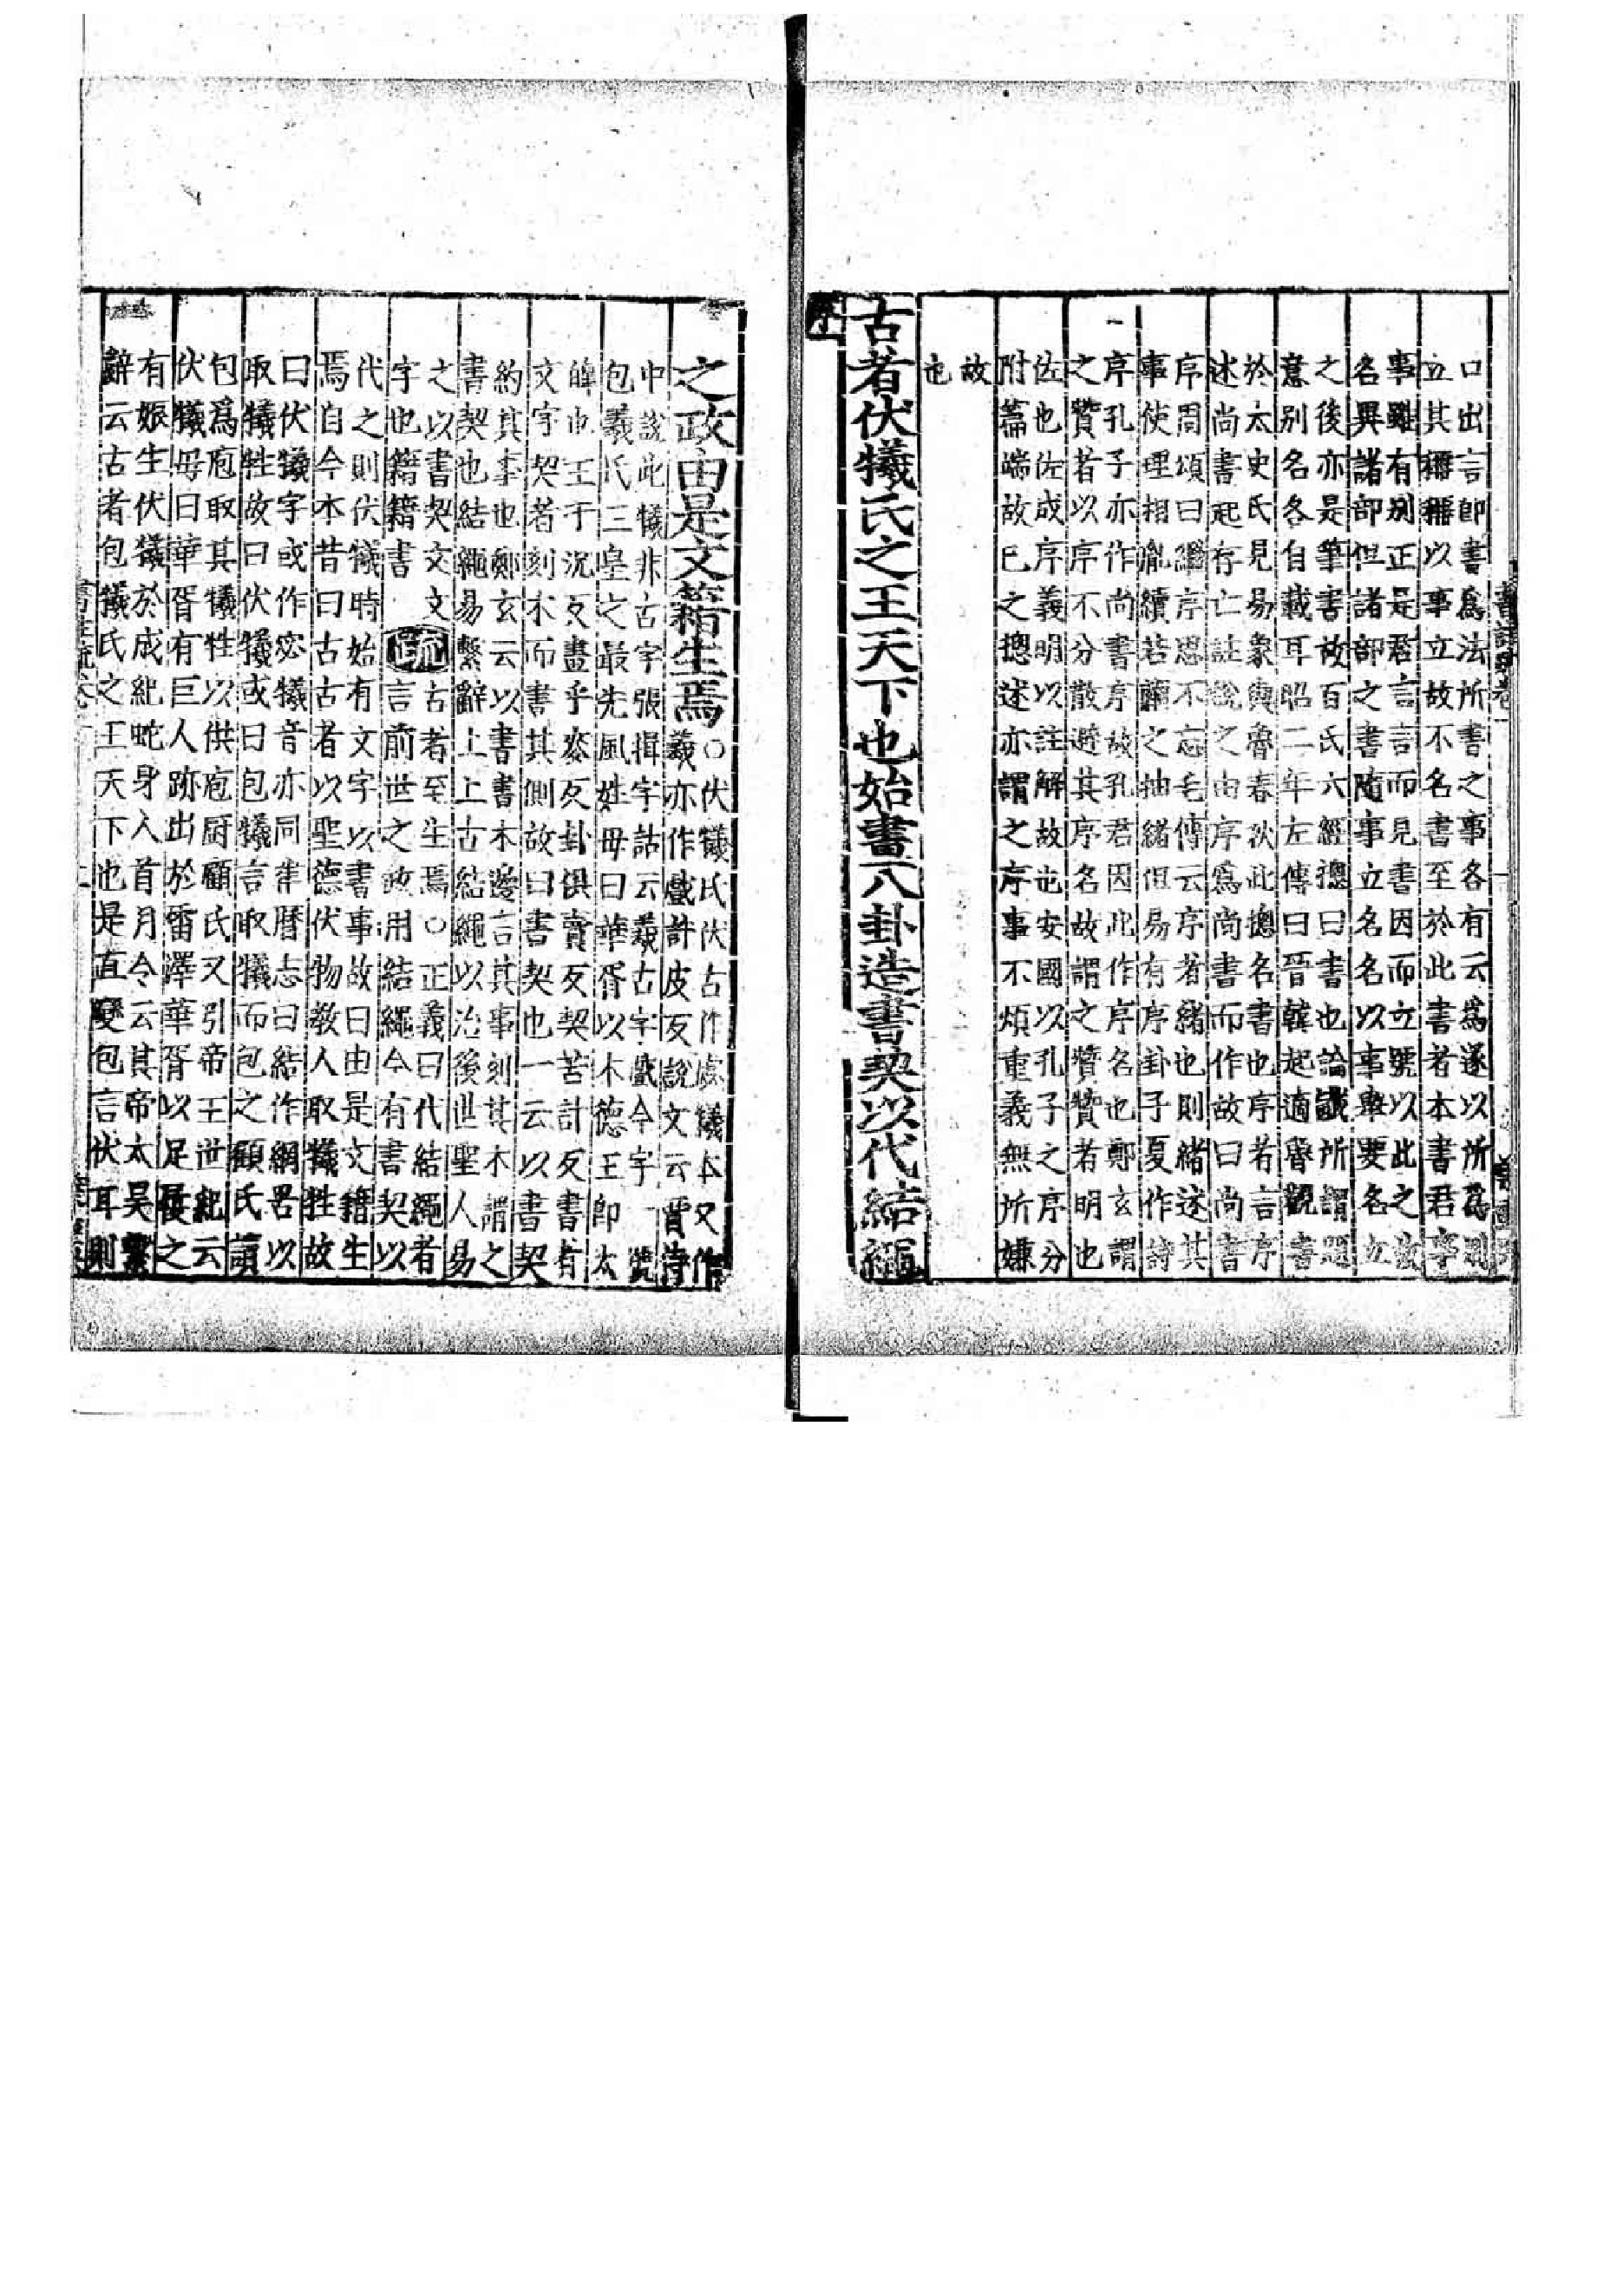 口出言即書爲法所書之事各有云爲遂以所爲別
立其稱稱以事立故不名書至於此書者本書君事
事雖有別正是君言言而見書因而立號以此之故
名異諸部但諸部之書隨事立名名以事舉要名立
之後亦是筆書故百氏六經摠曰書也論讖所謂題
意別名各自載耳昭二年左傳曰晉韓起適魯觀書
於太史氏見易象與魯春秋此摠名書也序者言序
述尚書起存亡註說之由序爲尚書而作故曰尚書
序周頌曰繼序思不忘毛傳云序者緒也則緒述其
事使理相胤續若繭之抽緒但易有序卦子夏作詩
序孔子亦作尚書序故孔君因此作序名也鄭玄謂
之贊者以序不分散避其序名故謂之贊贊者明也
佐也佐成序義明以註解故也安國以孔子之序分
附篇端故已之摠述亦謂之序事不煩重義無所嫌
故
也
古者伏犧氏之王天下也始畫八卦造書契以代結繩
之政由是文籍生焉
○伏犧氏伏古作虙犧本又作
羲亦作戲許皮反說文云賈侍
中說此犧非古字張揖字詁云羲古字戲今字一號
包羲氏三皇之最先風姓母曰華胥以木德王即太
皥也王于沉反畫乎麥反卦俱賣反契苦計反書者
文字契者刻木而書其側故曰書契也一云以書契
約其事也鄭玄云以書書木邊言其事刻其木謂之
書契也結繩易繫辭上上古結繩以治後世聖人易
之以書契文文
字也籍籍書
疏
古者至生焉○正義曰代結繩者
言前世之政用結繩今有書契以
代之則伏犧時始有文字以書事故曰由是文籍生
焉自今本昔曰古古者以聖德伏物教人取犧牲故
曰伏犧字或作宓犧音亦同律曆志曰結作網罟以
取犧牲故曰伏犧或曰包犧言取犧而包之顧氏讀
包爲庖取其犧牲以供庖厨顧氏又引帝王世紀云
伏犧母曰華胥有巨人跡出於雷澤華胥以足履之
有娠生伏犧於成紀蛇身人首月令云其帝太昊繫
辭云古者包犧氏之王天下也是直變包言伏耳則